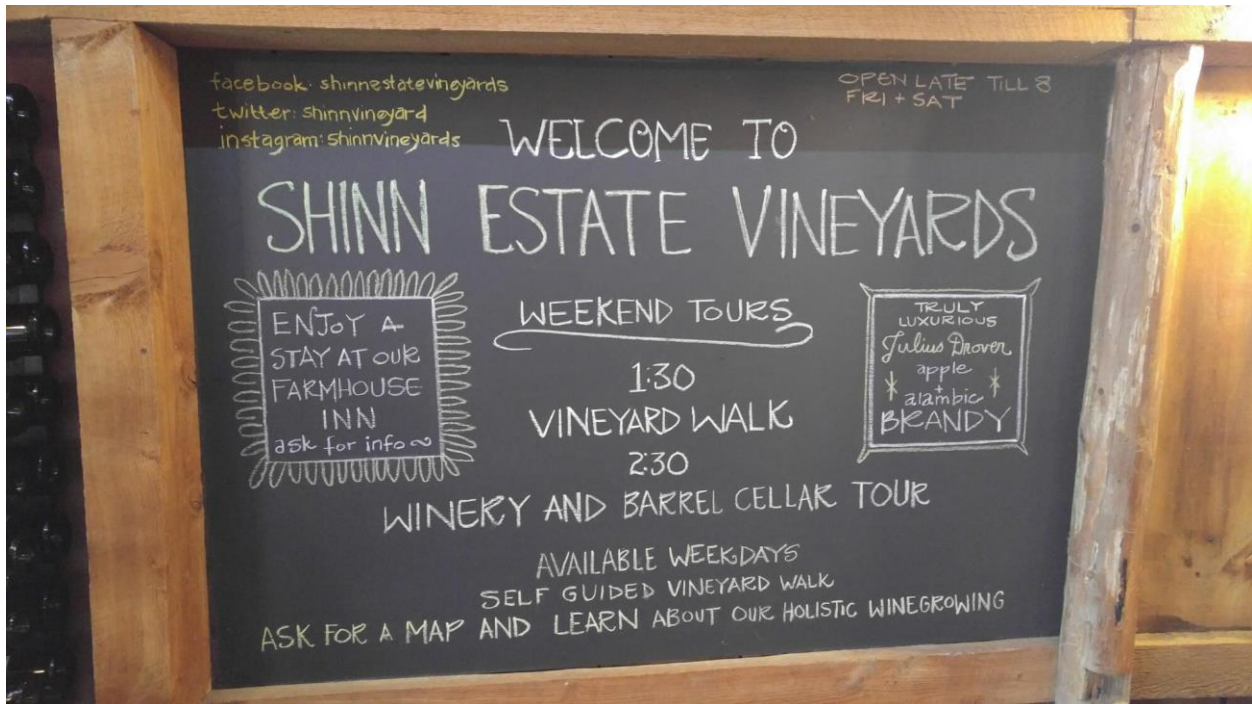 facebook: shinnestatevineyards
twitter: shinnvineyard
instagram: shinnvineyards
OPEN LATE TILL 8
FRI + SAT
WELCOME TO
SHINN ESTATE VINEYARDS
ENJOY A
STAY AT OUR
FARMHOUSE
INN
ask for info ~
WEEKEND TOURS
1:30
VINEYARD WALK
2:30
WINERY AND BARREL CELLAR TOUR
TRULY
LUXURIOUS
Julius Drover
apple
+
alambic
BRANDY
AVAILABLE WEEKDAYS
SELF GUIDED VINEYARD WALK
ASK FOR A MAP AND LEARN ABOUT OUR HOLISTIC WINEGROWING